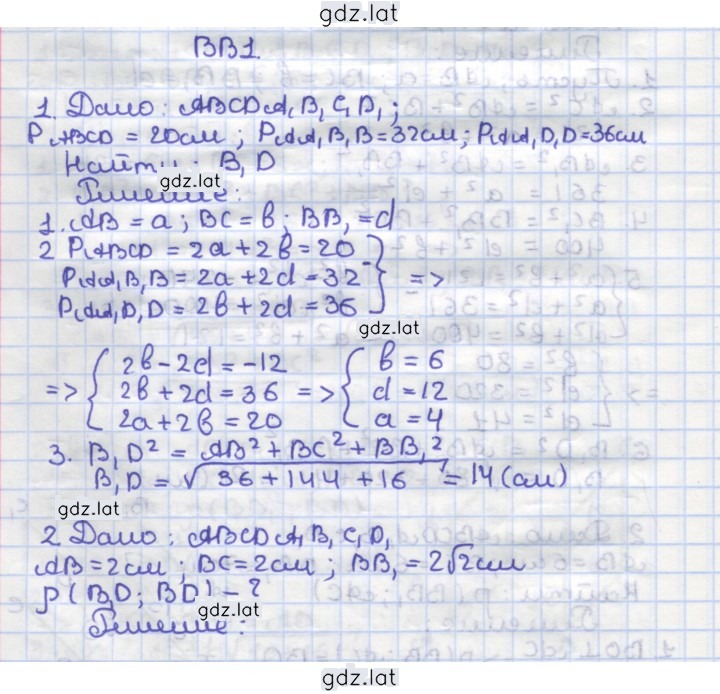 gdz.lat
BB1.
1. Дано: ABCDA₁B₁C₁D₁;
P ABCD = 20см; P AA₁B₁B = 32см; P AA₁D₁D = 36см
Найти: B₁D
gdz.lat
Решение:
1. AB = a; BC = b; BB₁ = d
2 P ABCD = 2a + 2b = 20
P AA₁B₁B = 2a + 2d = 32 } =>
P AA₁D₁D = 2b + 2d = 36
gdz.lat
{ 2b - 2d = -12 { b = 6
=> { 2b + 2d = 36 => { d = 12
{ 2a + 2b = 20 { a = 4
3. B₁D² = AB² + BC² + BB₁²
B₁D = √36 + 144 + 16 = 14 (см)
gdz.lat
2 Дано: ABCDA₁B₁C₁D₁
AB = 2см; BC = 2см; BB₁ = 2√2см
ρ(B₁D; BD) - ?
gdz.lat
Решение:
gdz.lat